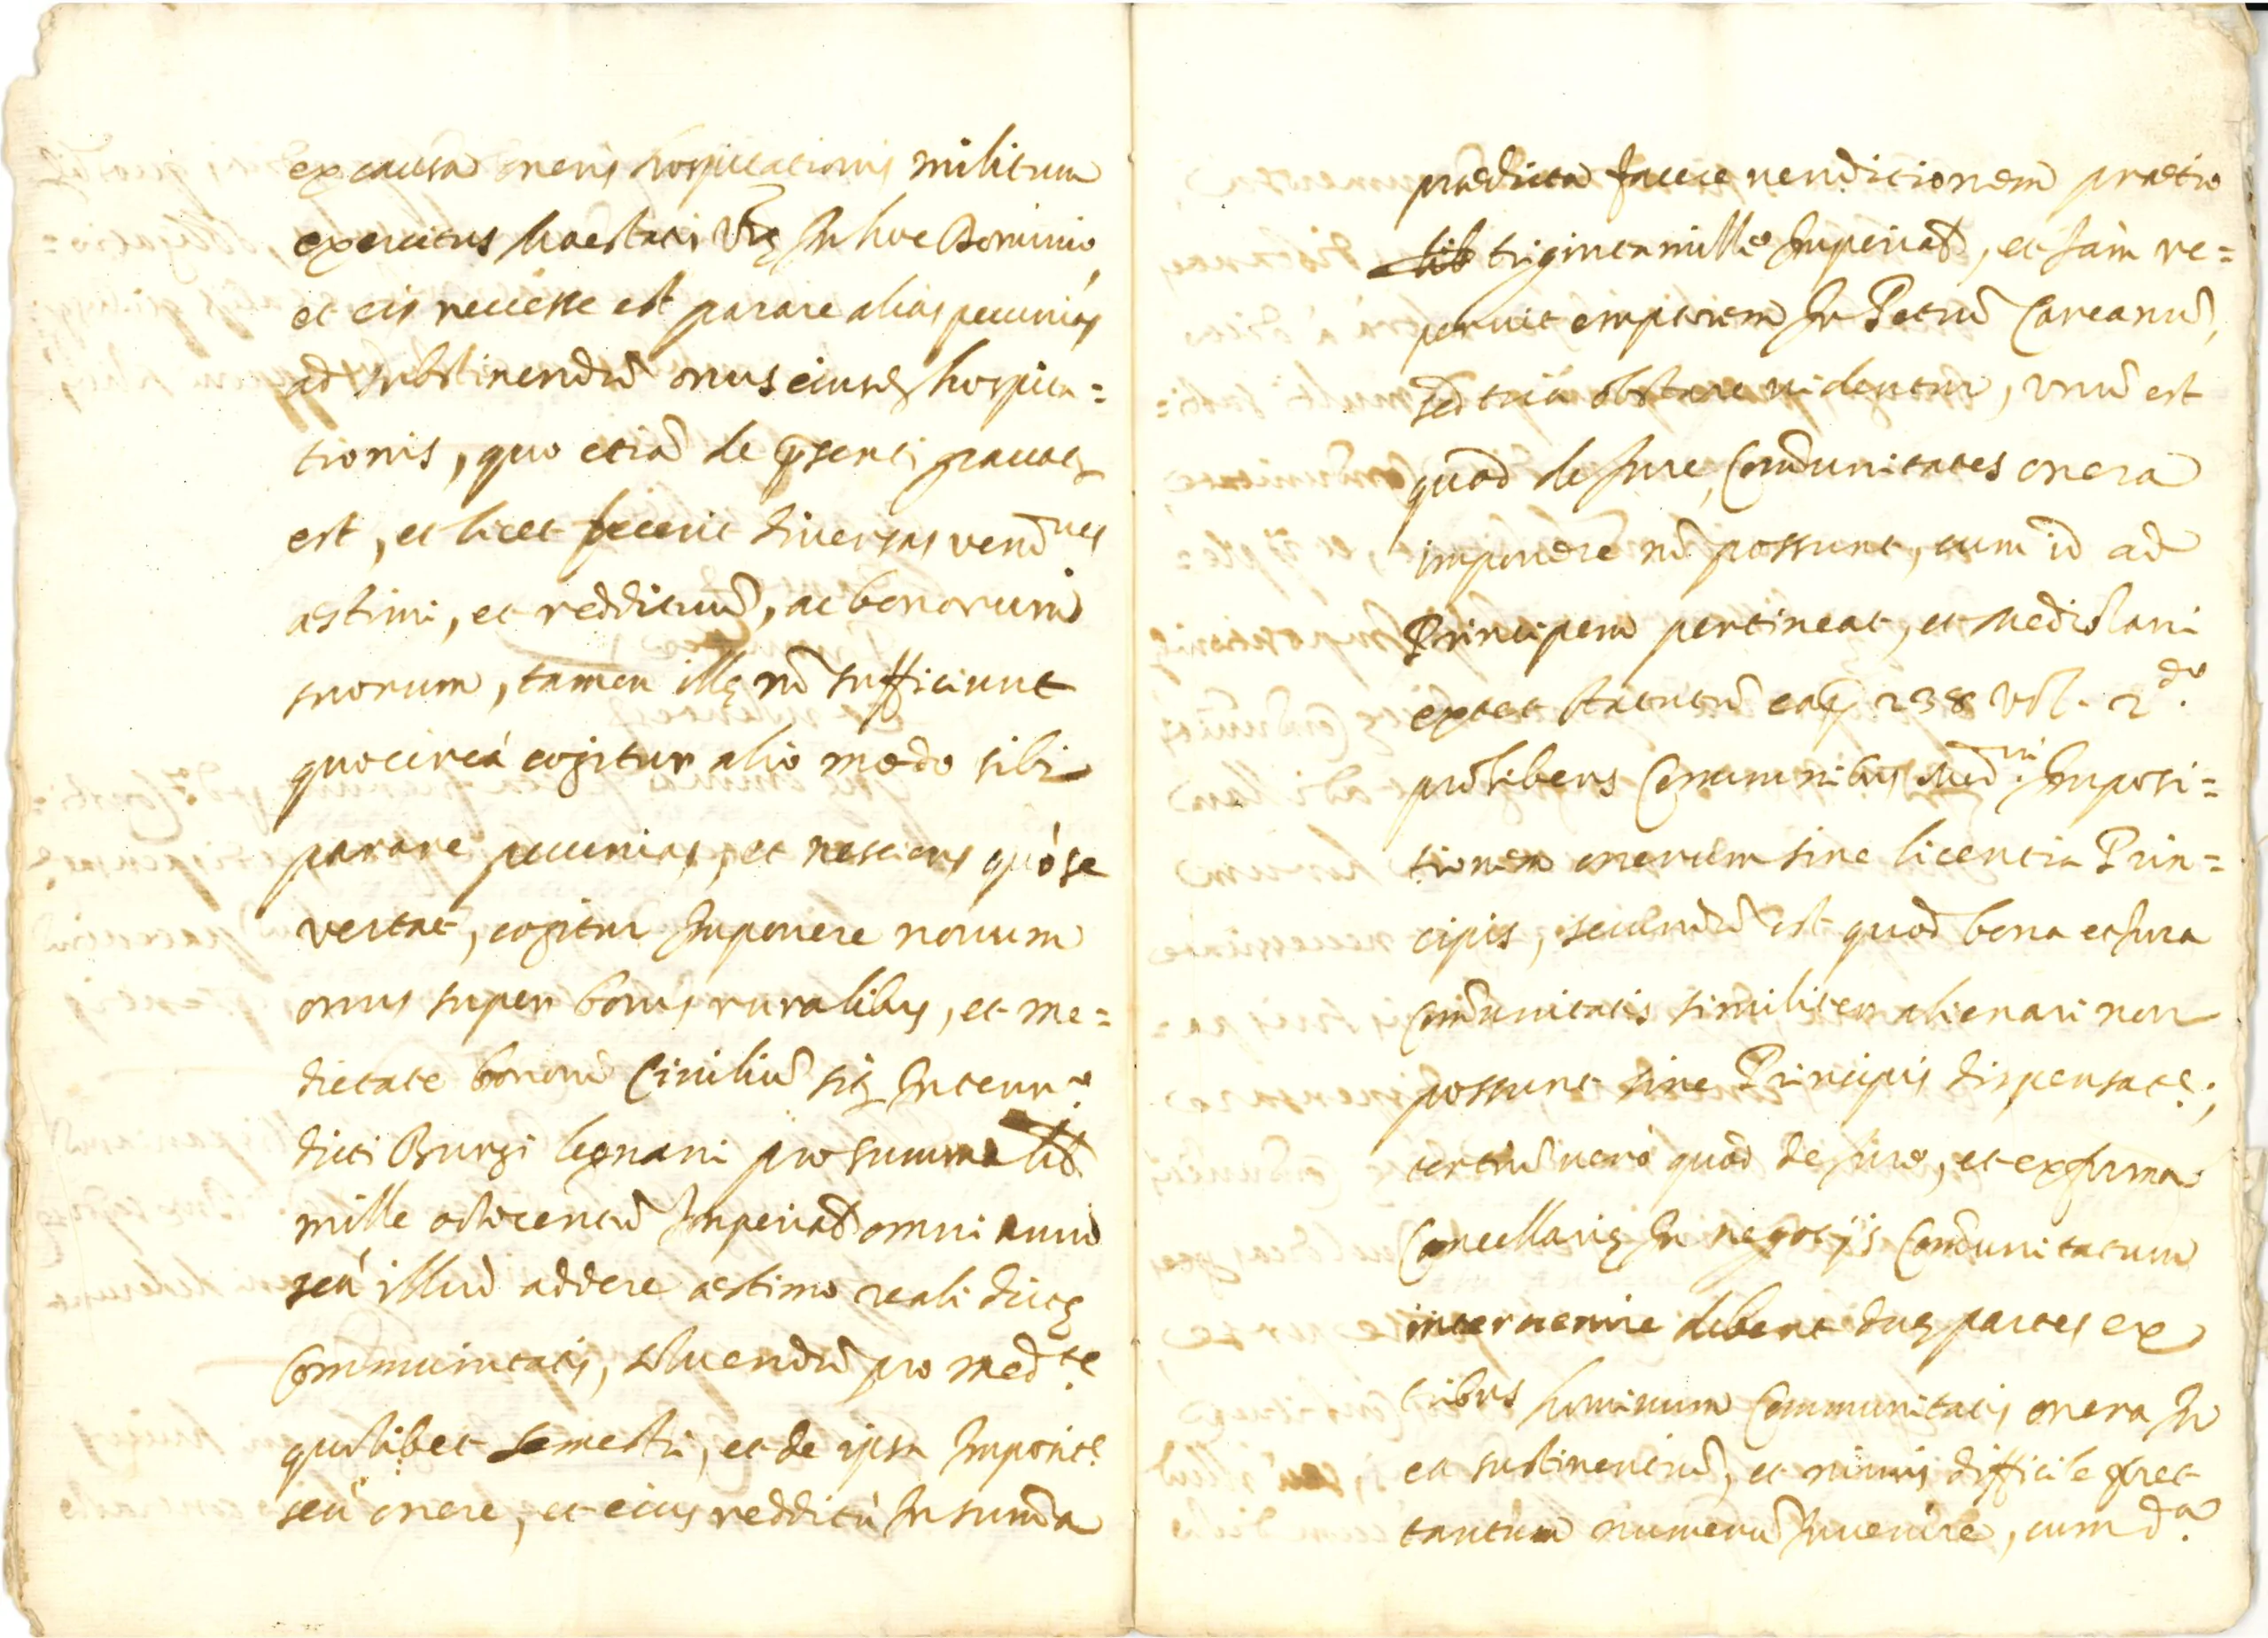 ex causa oneris hospitationis militum
exercitus Maestatis Vrę In hoc Dominio,
et eis necesse est parare alias pecunias
ad substinendũ onus eiusdẽ hospita=
tionis, quo etiã de pñsenti grauat9
est, et licet fecerit diuersas vend.nes
æstimi, et reddituũ, ac bonorum
suorum, tamen illę nõ sufficiunt
quocircà cogitur alio modo sibi
parare pecunias, et nesciens quò se
vertat, cogitur Imponere nouum
onus super bonis ruralibus, et me=
dietate bonorũ Ciuiliũ sitę In terr.o
dicti Burgi legnani pro summa lib
mille octocentũ Imperial omni anno
seù illud addere æstimo reali dictę
Communitatis, soluendũ pro med.te
quolibet semestri, et de ipsa Imposit.e
seù onere, et eius redditù In sum̃a
prædicta facere venditionem prætio
lib triginta mille Imperial, et Iam re=
peruit emptorem In Petrũ Careanũ,
sed tria obstare videntur, vnũ est
quod de Iure, Com̃unitates onera
imponere nõ possunt, cum id ad
Principem pertineat, et Mediolani
extet statutũ cap 238 vol. 2.do
prohibens Communibus Med.ni Imposi=
tionem onerum sine licentia Prin=
cipis, secundũ est quod bona et Iura
Com̃unitatis similiter alienari non
possunt sine Principis dispensat.e;
tertiũ verò quòd de Iure, et ex forma
Cancellarię In negotijs Com̃unitatum
interuenire debent duę partes ex
tribus hominum Communitatis onera In
ea sustinentiũ, et nimis difficile foret
tantum numerũ Inuenire, cum d.a